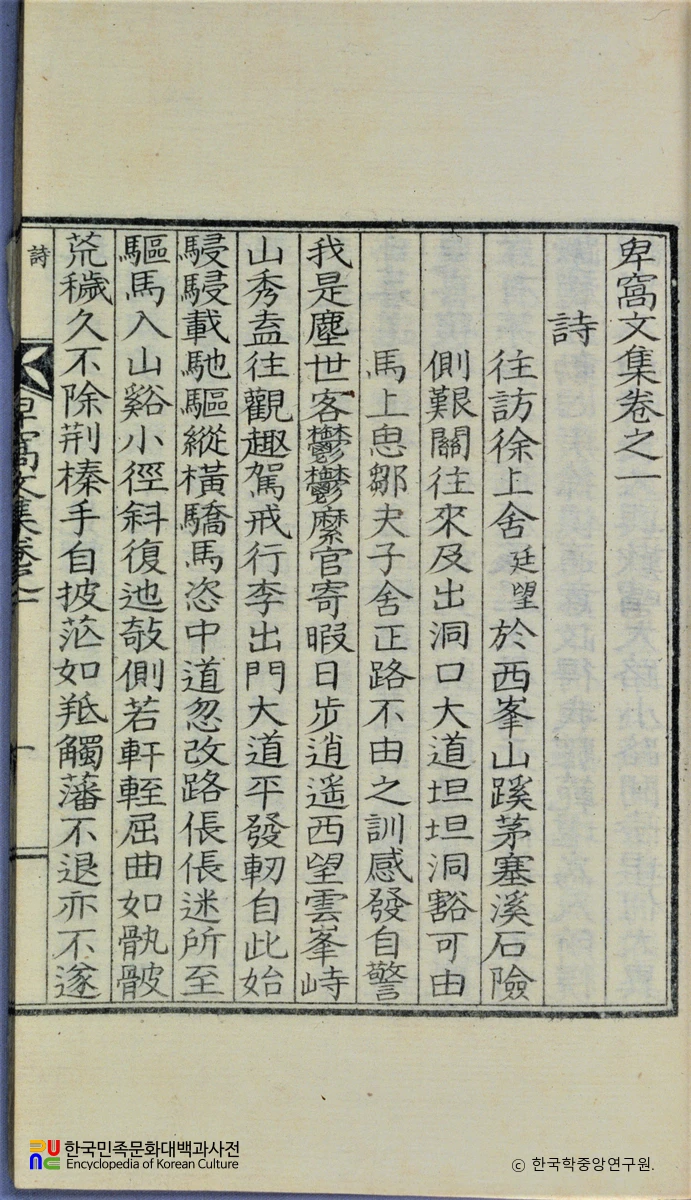 卑窩文集卷之一
詩
往訪徐上舍廷望於西峯山蹊茅塞溪石險
側艱關往來及出洞口大道坦坦洞豁可由
馬上思鄒夫子舍正路不由之訓感發自警
我是塵世客鬱鬱縻官寄暇日步逍遙西望雲峯峙
山秀盍往觀趣駕戒行李出門大道平發軔自此始
駸駸載馳驅縱橫驕馬恣中道忽改路倀倀迷所至
驅馬入山谿小徑斜復迆攲側若軒輊屈曲如骫骳
荒穢久不除荆榛手自披茫如羝觸藩不退亦不遂
詩
卑窩文集卷之一
一
한국민족문화대백과사전
Encyclopedia of Korean Culture
© 한국학중앙연구원.